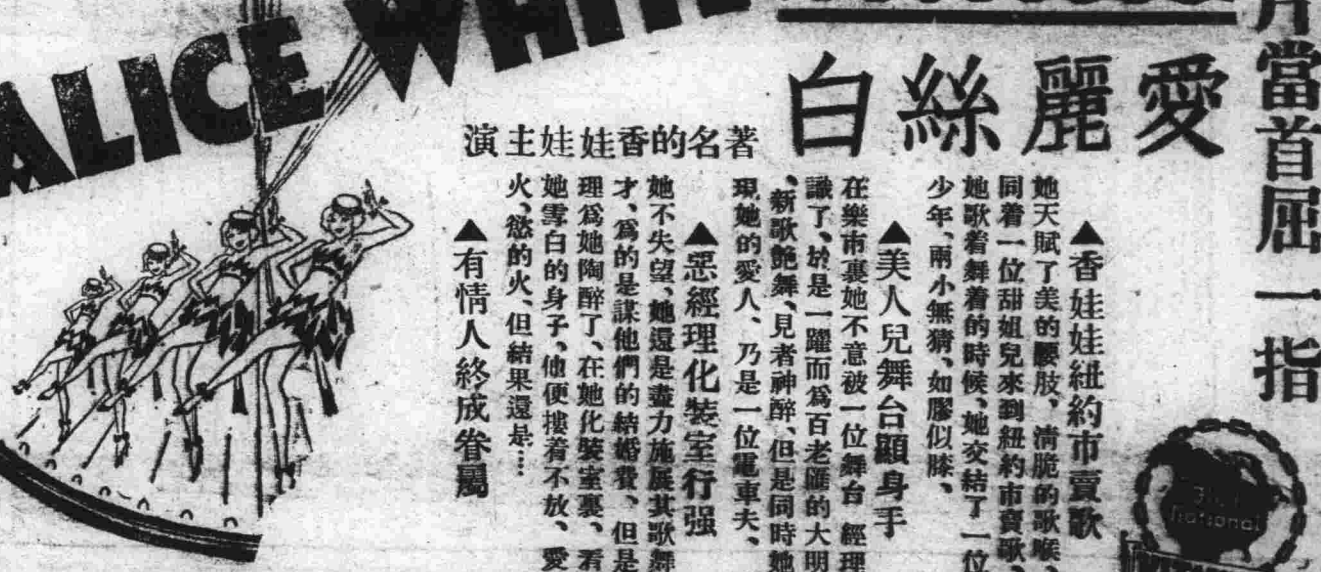 ALICE WHITE
片當首屈一指
愛麗絲白
著名的香娃娃主演
▲香娃娃紐約市賣歌
她天賦了美的腰肢、清脆的歌喉、
同着一位甜姐兒來到紐約市賣歌、
她歌着舞着的時候、她交結了一位
少年、兩小無猜、如膠似膝、
▲美人兒舞台顯身手
在樂市裏她不意被一位舞台經理
識了、於是一躍而爲百老匯的大明
、新歌艷舞、見者神醉、但是同時她
現她的愛人、乃是一位電車夫、
▲惡經理化裝室行强
她不失望、她還是盡力施展其歌舞
才、爲的是謀他們的結婚費、但是
理爲她陶醉了、在她化裝室裏、看
她雪白的身子、他便摟着不放、愛
火、慾的火、但結果還是…
▲有情人終成眷屬
First National